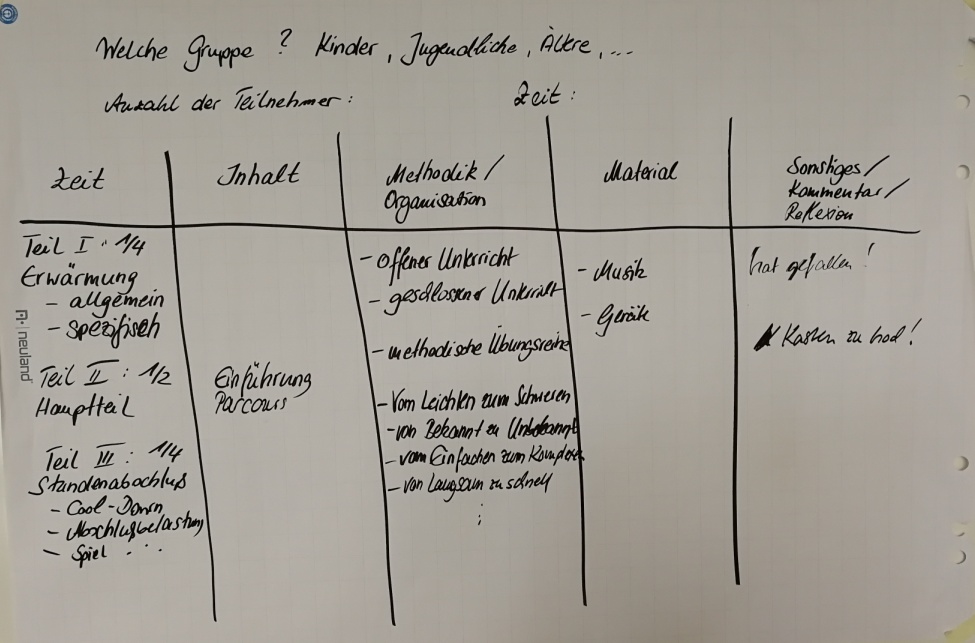 Welche Gruppe ? Kinder, Jugendliche, Ältre, ...
Anzahl der Teilnehmer :
Zeit :
Zeit
Inhalt
Methodik /
Organisation
Material
Sonstiges /
Kommentar /
Reflexion
Teil I : 1/4
Erwärmung
- allgemein
- spezifisch
Teil II : 1/2
Hauptteil
Teil III : 1/4
Stundenabschluß
- Cool-Down
- Abschlußbelastung
- Spiel ...
Einführung
Parcours
- offener Unterricht
- geschlossener Unterricht
- methodische Übungsreihe
- Vom Leichten zum Schweren
- von Bekannt zu Unbekannt
- vom Einfachen zum Komplexen
- von Langsam zu schnell
:
- Musik
- Geräte
hat gefallen !
Kasten zu hoch !
neuland